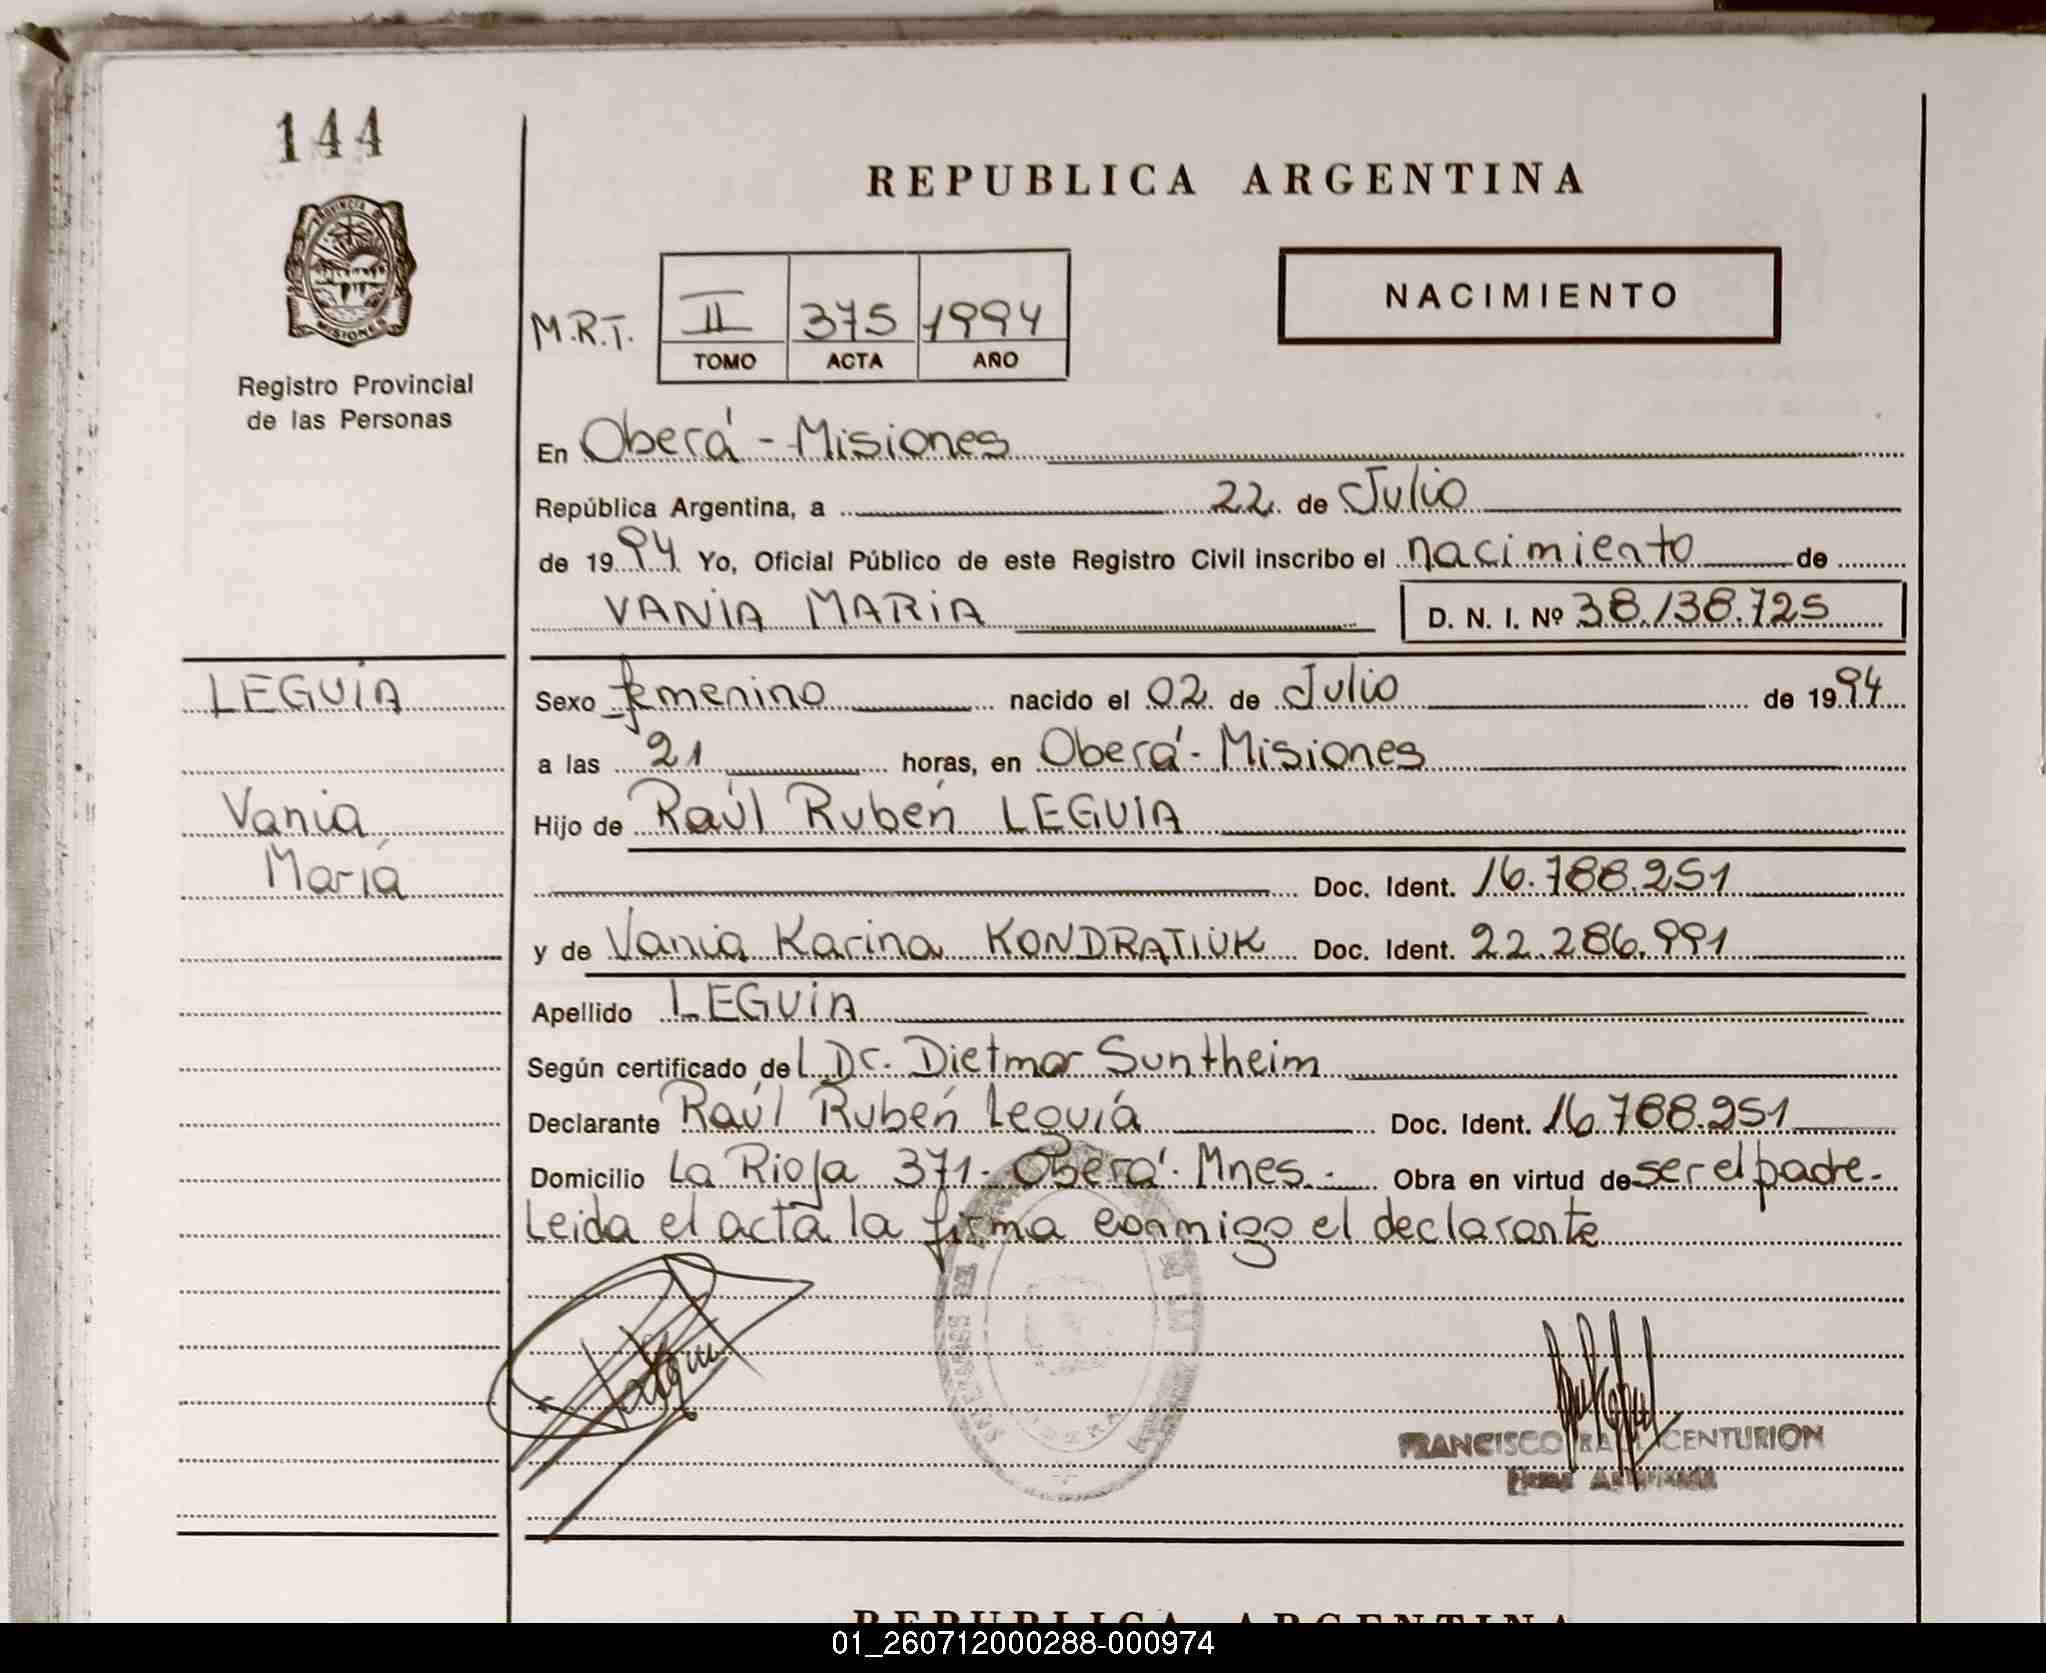 144
REPUBLICA ARGENTINA
PROVINCIA DE
MISIONES
Registro Provincial
de las Personas
M.R.T.
II 375 1994
TOMO ACTA AÑO
NACIMIENTO
En Oberá - Misiones
República Argentina, a 22 de Julio
de 1994 Yo, Oficial Público de este Registro Civil inscribo el nacimiento de
VANIA MARIA D. N. I. Nº 38.138.725
LEGUIA
Vania
María
Sexo femenino nacido el 02 de Julio de 1994
a las 21 horas, en Oberá - Misiones
Hijo de Raúl Rubén LEGUIA
Doc. Ident. 16.788.251
y de Vania Karina KONDRATIUK Doc. Ident. 22.286.991
Apellido LEGUIA
Según certificado del Dr. Dietmar Suntheim
Declarante Raúl Rubén Leguiá Doc. Ident. 16.788.251
Domicilio La Rioja 371 - Oberá - Mnes. - Obra en virtud de ser el padre -
Leida el acta la firma conmigo el declarante
FRANCISCO RAUL CENTURION
Firma Autorizada
REPUBLICA ARGENTINA
01_260712000288-000974